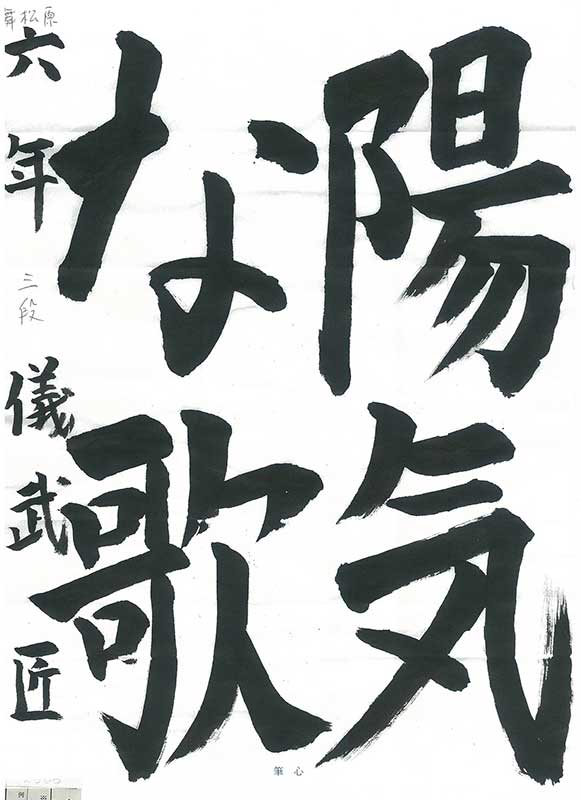 陽気
な歌
六年 三段 儀武 匠
松原
心筆